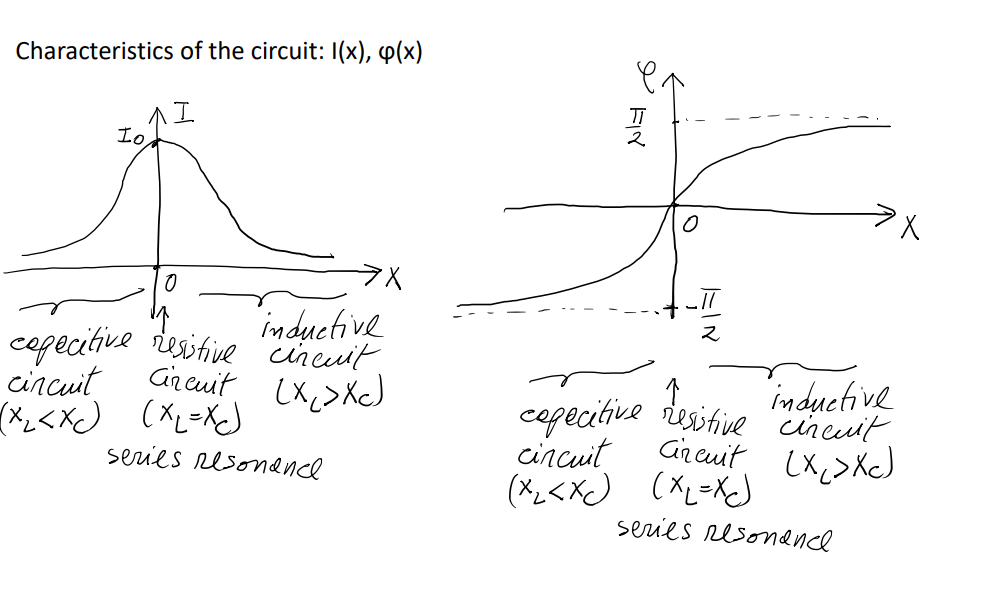 Characteristics of the circuit: I(x), φ(x)
I
I0
0
X
capacitive
circuit
(XL<XC)
resistive
circuit
(XL=XC)
inductive
circuit
(XL>XC)
series resonance
φ
π/2
0
X
-π/2
capacitive
circuit
(XL<XC)
resistive
circuit
(XL=XC)
inductive
circuit
(XL>XC)
series resonance